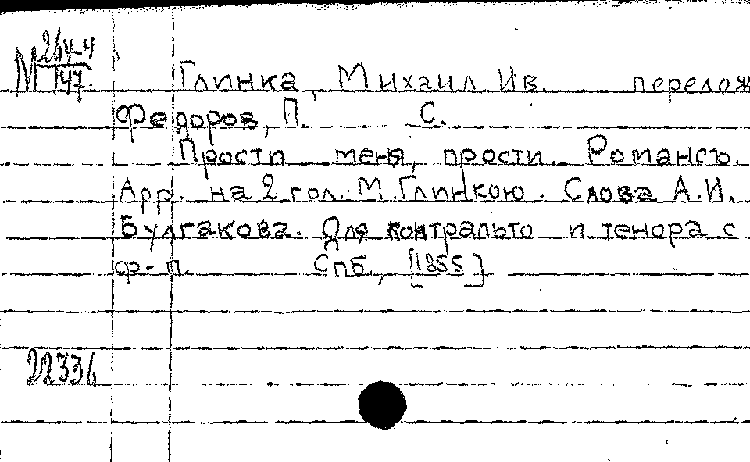 М 264-4
147.
Глинка, Михаил Ив. перелож
Федоров, П. С.
Прости меня, прости. Романсъ.
Арр. на 2 гол. М. Глинкою. Слова А.И.
Булгакова. Для контральто и тенора с
ф-п. Спб., [1855]
22336